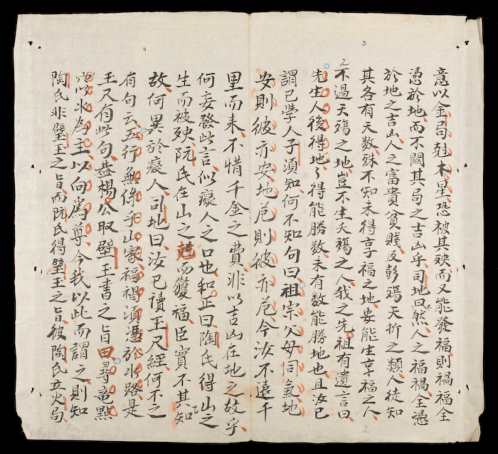 意以金局剋木星恐被其殃而又能發福則禍福全
憑於地而不關其局之吉凶乎司地曰然人之禍福全憑
於地之吉凶人之富貴貧賤及彭殤夭折之類人徒知
其各有天數殊不知未得享福之地安能生享福之人
不過夭殤之地豈不生夭殤之人我之先祖有遺言曰
先生人後得地々得能勝数未有数能勝地也且汝已
謂已學人子須知何不知句曰祖宗父母同氣地
安則彼亦安地危則彼亦危今汝不遠千
里而來不惜千金之費非以吉凶在地之故乎
何妄啓此言似癡人之口也和正曰陶氏得山之
生而被殃阮氏在山之尅而獲福臣實不其知
故何異於癡人司地曰汝已讀玉尺經何不之
有句云五行無停於山家福禍須憑於水路是
玉又有此句盖楊公取璧玉書之旨曰尋竜點
穴以水為主以向為尊今我以此而謂之則知
陶氏非璧玉之旨而阮氏得璧玉之旨彼陶氏立火局